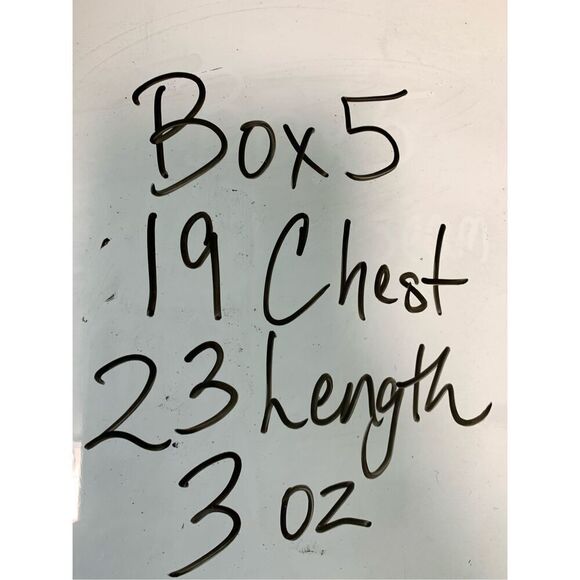 Box 5
19 Chest
23 Length
3 oz